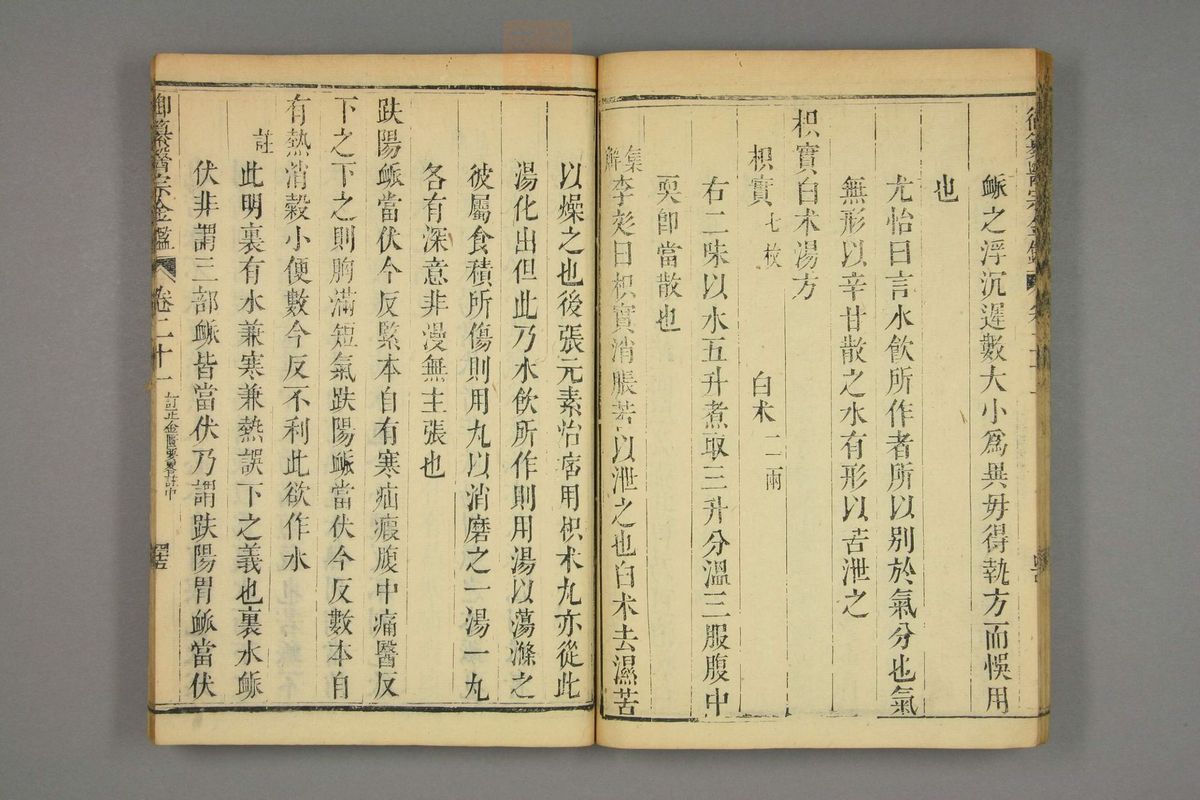 脈之浮沉遲數大小爲異毋得執方而悞用
也
尤怡曰言水飮所作者所以別於氣分也氣
無形以辛甘散之水有形以苦泄之
枳實白朮湯方
枳實七枚 白朮二兩
右二味以水五升煮取三升分溫三服腹中
耎卽當散也
集解 李彣曰枳實消脹苦以泄之也白朮去濕苦
以燥之也後張元素治痞用枳朮丸亦從此
湯化出但此乃水飮所作則用湯以蕩滌之
彼屬食積所傷則用丸以消磨之一湯一丸
各有深意非漫無主張也
趺陽脈當伏今反緊本自有寒疝瘕腹中痛醫反
下之下之則胸滿短氣趺陽脈當伏今反數本自
有熱消穀小便數今反不利此欲作水
註 此明裏有水兼寒兼熱誤下之義也裏水脈
伏非謂三部脈皆當伏乃謂趺陽胃脈當伏
御纂醫宗金鑑 卷二十一 訂正金匱要畧註中